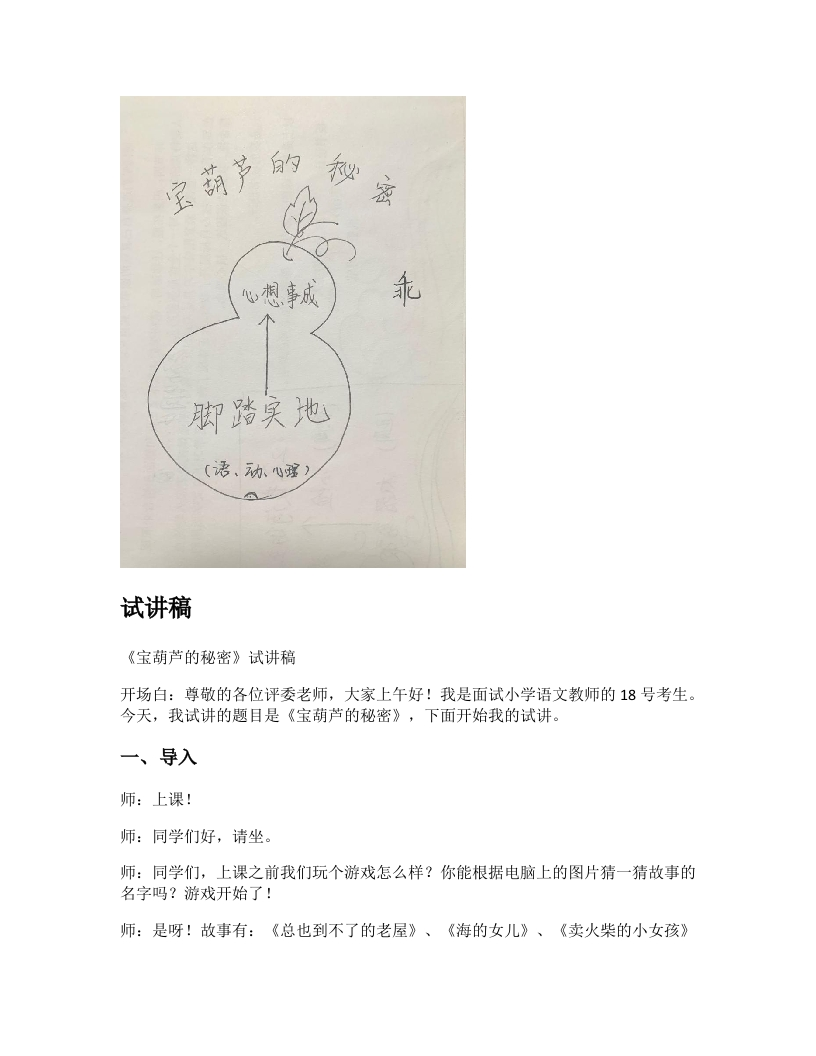 宝葫芦的秘密
心想事成
乖
脚踏实地
（语、动、心理）
试讲稿
《宝葫芦的秘密》试讲稿
开场白：尊敬的各位评委老师，大家上午好！我是面试小学语文教师的 18 号考生。
今天，我试讲的题目是《宝葫芦的秘密》，下面开始我的试讲。
一、导入
师：上课！
师：同学们好，请坐。
师：同学们，上课之前我们玩个游戏怎么样？你能根据电脑上的图片猜一猜故事的
名字吗？游戏开始了！
师：是呀！故事有：《总也到不了的老屋》、《海的女儿》、《卖火柴的小女孩》